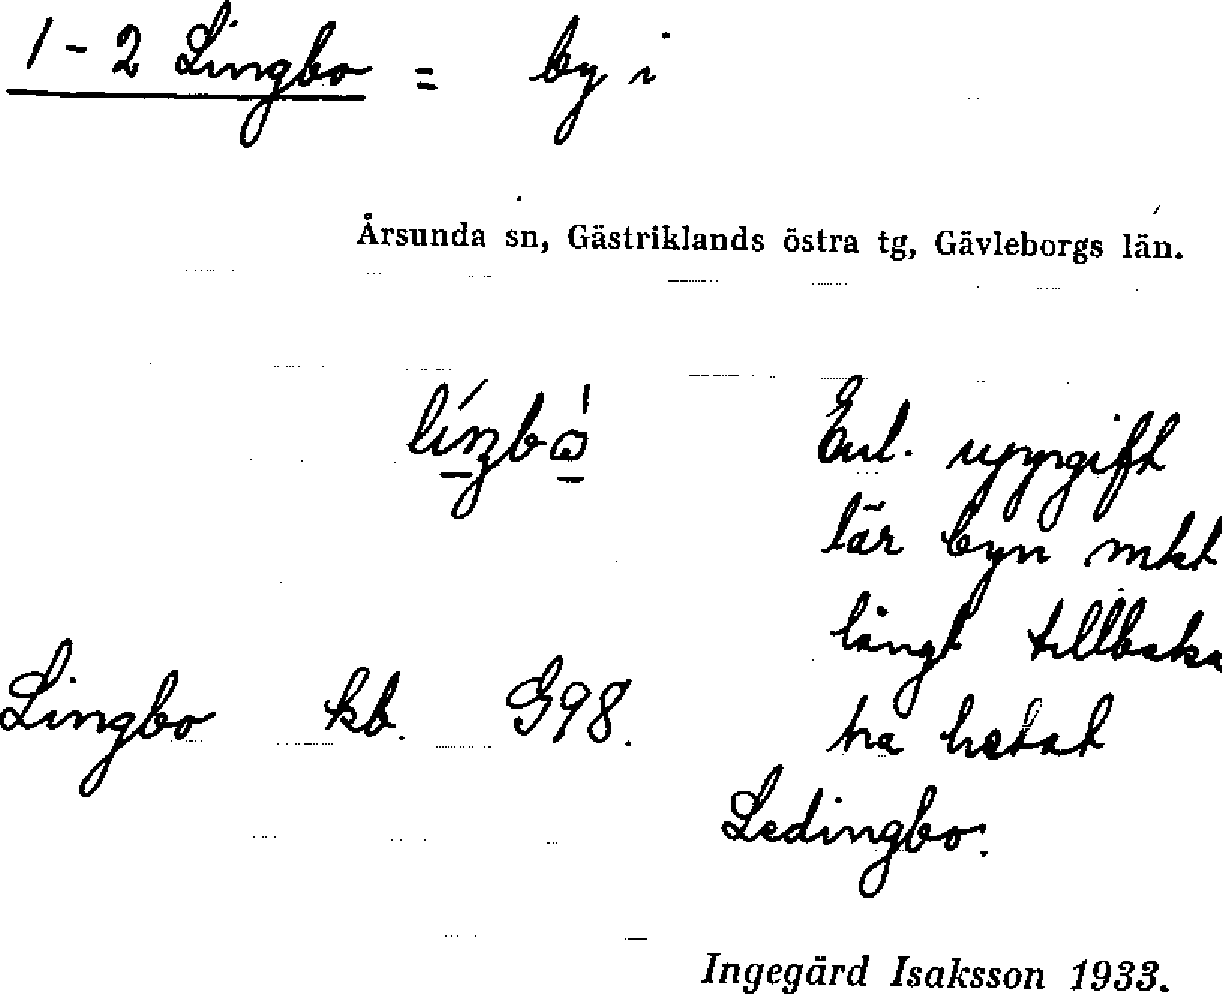 1-2 Lingbo = by i
Årsunda sn, Gästriklands östra tg, Gävleborgs län.
Enl. uppgift
lär byn mkt
långt tillbaka
ha hetat
Ledingbo.
Lingbo kb. G98.
Ingegärd Isaksson 1933.